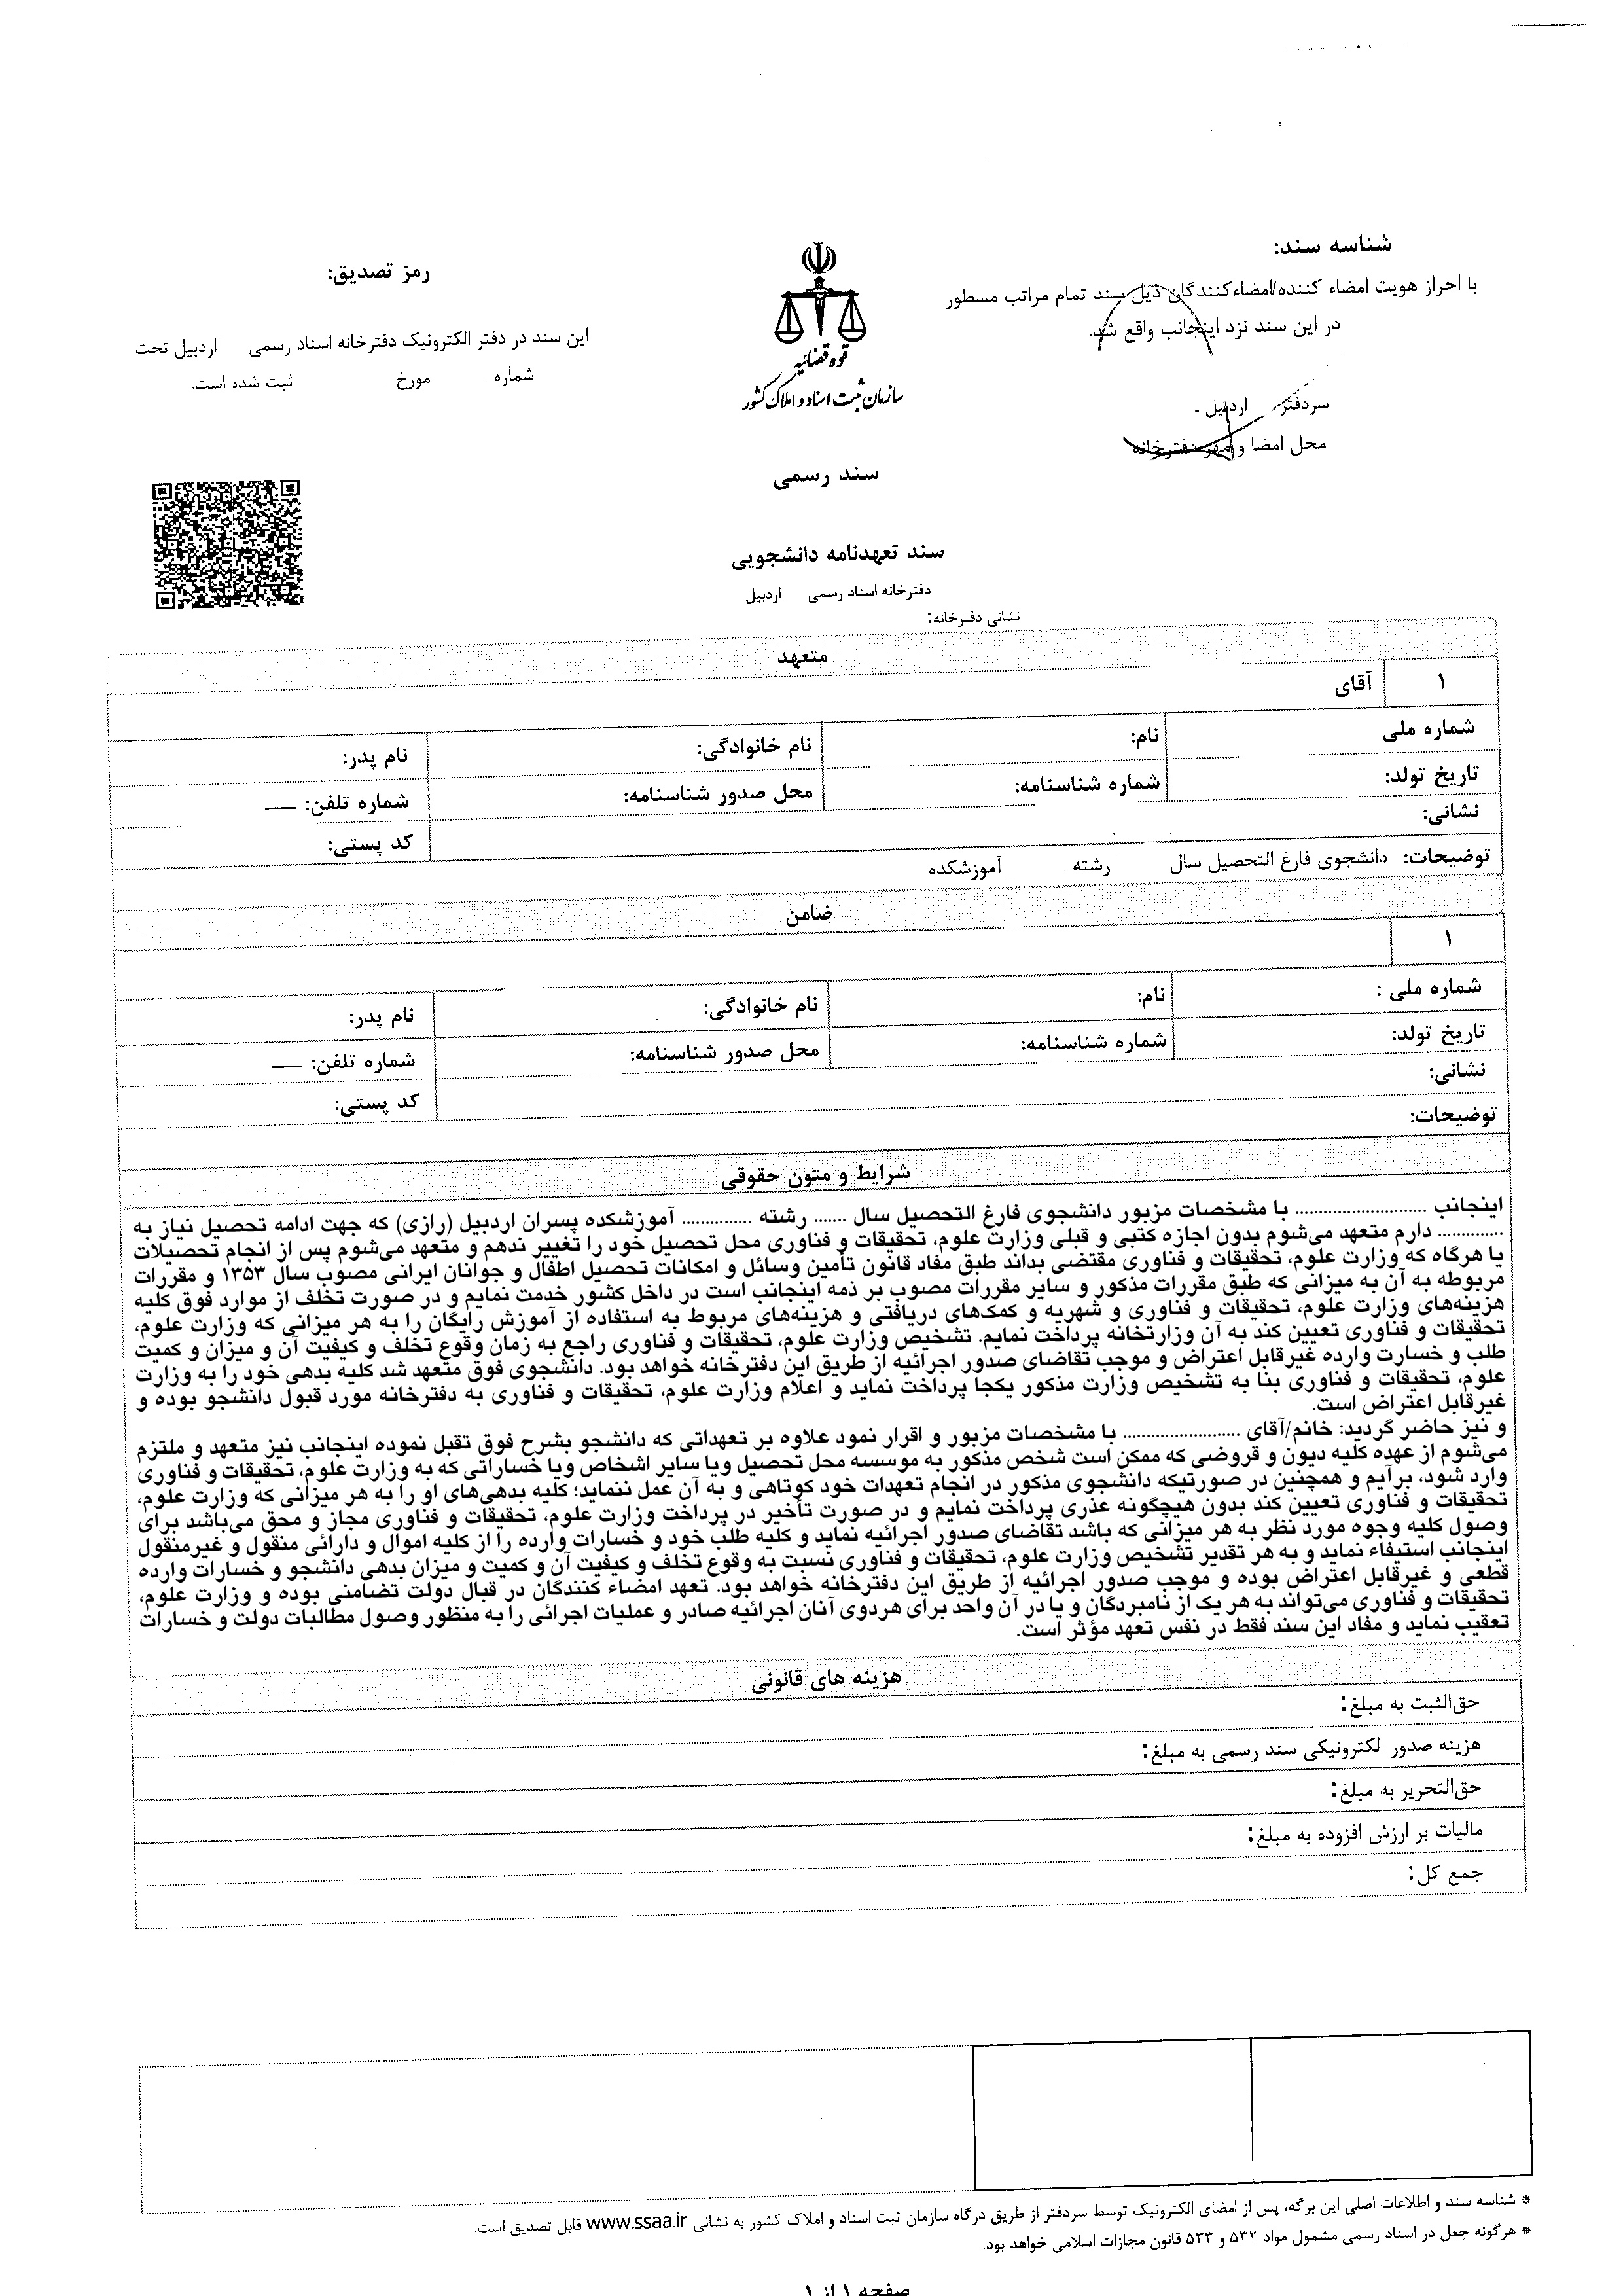 شناسه سند:
با احراز هویت امضاء کننده/امضاءکنندگان ذیل سند تمام مراتب مسطور
در این سند نزد اینجانب واقع شد.
سردفتر اردبیل -
محل امضا و مهر دفترخانه
قوه قضائیه
سازمان ثبت اسناد و املاک کشور
سند رسمی
سند تعهدنامه دانشجویی
دفترخانه اسناد رسمی اردبیل
نشانی دفترخانه:
رمز تصدیق:
این سند در دفتر الکترونیک دفترخانه اسناد رسمی اردبیل تحت
شماره مورخ ثبت شده است.
متعهد
۱ آقای
شماره ملی نام: نام خانوادگی: نام پدر:
تاریخ تولد: شماره شناسنامه: محل صدور شناسنامه: شماره تلفن: ---
نشانی: کد پستی:
توضیحات: دانشجوی فارغ التحصیل سال رشته آموزشکده
ضامن
۱
شماره ملی : نام: نام خانوادگی: نام پدر:
تاریخ تولد: شماره شناسنامه: محل صدور شناسنامه: شماره تلفن: ---
نشانی: کد پستی:
توضیحات:
شرایط و متون حقوقی
اینجانب ......................... با مشخصات مزبور دانشجوی فارغ التحصیل سال ...... رشته ............. آموزشکده پسران اردبیل (رازی) که جهت ادامه تحصیل نیاز به
............ دارم متعهد می‌شوم بدون اجازه کتبی و قبلی وزارت علوم، تحقیقات و فناوری محل تحصیل خود را تغییر ندهم و متعهد می‌شوم پس از انجام تحصیلات
یا هرگاه که وزارت علوم، تحقیقات و فناوری مقتضی بداند طبق مفاد قانون تأمین وسائل و امکانات تحصیل اطفال و جوانان ایرانی مصوب سال ۱۳۵۳ و مقررات
مربوطه به آن به میزانی که طبق مقررات مذکور و سایر مقررات مصوب بر ذمه اینجانب است در داخل کشور خدمت نمایم و در صورت تخلف از موارد فوق کلیه
هزینه‌های وزارت علوم، تحقیقات و فناوری و شهریه و کمک‌های دریافتی و هزینه‌های مربوط به استفاده از آموزش رایگان را به هر میزانی که وزارت علوم،
تحقیقات و فناوری تعیین کند به آن وزارتخانه پرداخت نمایم. تشخیص وزارت علوم، تحقیقات و فناوری راجع به زمان وقوع تخلف و کیفیت آن و میزان و کمیت
طلب و خسارت وارده غیرقابل اعتراض و موجب تقاضای صدور اجرائیه از طریق این دفترخانه خواهد بود. دانشجوی فوق متعهد شد کلیه بدهی خود را به وزارت
علوم، تحقیقات و فناوری بنا به تشخیص وزارت مذکور یکجا پرداخت نماید و اعلام وزارت علوم، تحقیقات و فناوری به دفترخانه مورد قبول دانشجو بوده و
غیرقابل اعتراض است.
و نیز حاضر گردید: خانم/آقای ........................ با مشخصات مزبور و اقرار نمود علاوه بر تعهداتی که دانشجو بشرح فوق تقبل نموده اینجانب نیز متعهد و ملتزم
می‌شوم از عهده کلیه دیون و قروضی که ممکن است شخص مذکور به موسسه محل تحصیل ویا سایر اشخاص ویا خساراتی که به وزارت علوم، تحقیقات و فناوری
وارد شود، برآیم و همچنین در صورتیکه دانشجوی مذکور در انجام تعهدات خود کوتاهی و به آن عمل ننماید؛ کلیه بدهی‌های او را به هر میزانی که وزارت علوم،
تحقیقات و فناوری تعیین کند بدون هیچگونه عذری پرداخت نمایم و در صورت تأخیر در پرداخت وزارت علوم، تحقیقات و فناوری مجاز و محق می‌باشد برای
وصول کلیه وجوه مورد نظر به هر میزانی که باشد تقاضای صدور اجرائیه نماید و کلیه طلب خود و خسارات وارده را از کلیه اموال و دارائی منقول و غیرمنقول
اینجانب استیفاء نماید و به هر تقدیر تشخیص وزارت علوم، تحقیقات و فناوری نسبت به وقوع تخلف و کیفیت آن و کمیت و میزان بدهی دانشجو و خسارات وارده
قطعی و غیرقابل اعتراض بوده و موجب صدور اجرائیه از طریق این دفترخانه خواهد بود. تعهد امضاء کنندگان در قبال دولت تضامنی بوده و وزارت علوم،
تحقیقات و فناوری می‌تواند به هر یک از نامبردگان و یا در آن واحد برای هردوی آنان اجرائیه صادر و عملیات اجرائی را به منظور وصول مطالبات دولت و خسارات
تعقیب نماید و مفاد این سند فقط در نفس تعهد مؤثر است.
هزینه های قانونی
حق‌الثبت به مبلغ:
هزینه صدور الکترونیکی سند رسمی به مبلغ:
حق‌التحریر به مبلغ:
مالیات بر ارزش افزوده به مبلغ:
جمع کل:
* شناسه سند و اطلاعات اصلی این برگه، پس از امضای الکترونیک توسط سردفتر از طریق درگاه سازمان ثبت اسناد و املاک کشور به نشانی www.ssaa.ir قابل تصدیق است.
* هرگونه جعل در اسناد رسمی مشمول مواد ۵۳۲ و ۵۳۳ قانون مجازات اسلامی خواهد بود.
صفحه ۱ از ۱